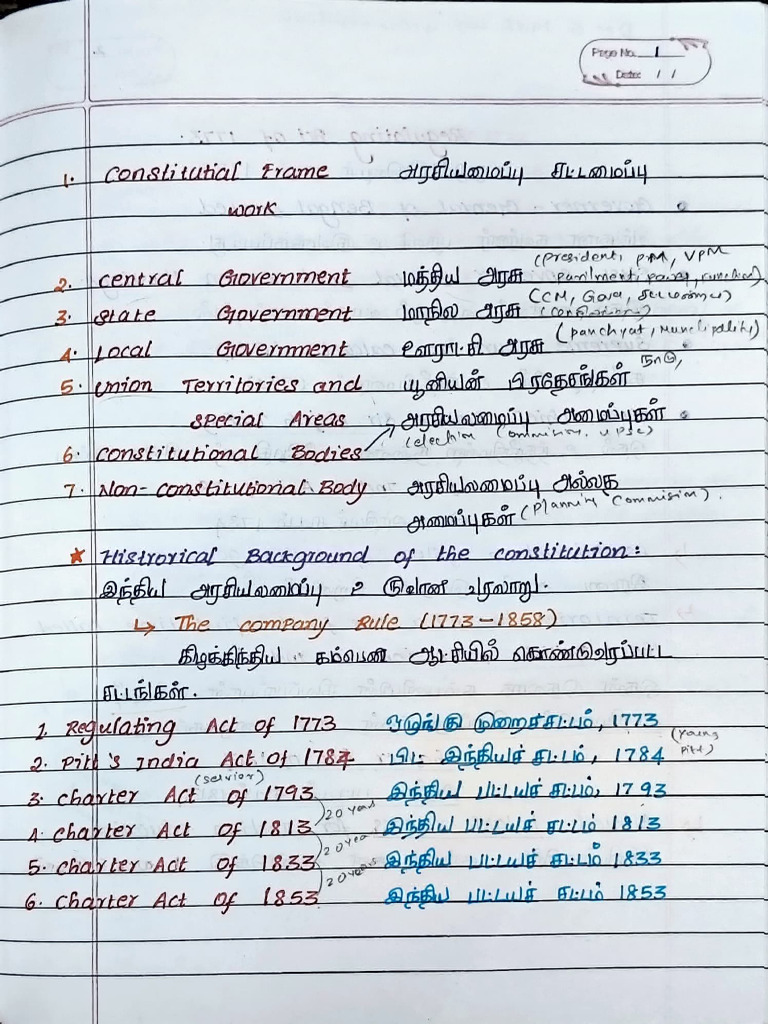 Page No. 1
Date: / /
1. Constitutial Frame அரசியமைப்பு சட்டமைப்பு
work
(President, PM, VPM
2. Central Government மத்திய அரசு
3. State Government மாநில அரசு (CM,
4. Local Government உள்ளாட்சி அரசு (panchyat, Muncipality)
5. Union Territories and யூனியன் பிரதேசங்கள்
Special Areas அரசியலமைப்பு அமைப்புகள்
6. Constitutional Bodies (election Commision, UPSC)
7. Non-constitutional Body. அரசியலமைப்பு அல்லாத
அமைப்புகள் (Planning Commision).
★ Histrorical Background of the constitution:
இந்திய அரசியலமைப்பு உருவான வரலாறு.
↳ The company Rule (1773-1858)
கிழக்கிந்திய கம்பெனி ஆட்சியில் கொண்டுவரப்பட்ட
சட்டங்கள்.
1. Regulating Act of 1773 ஒழுங்கு முறைச்சட்டம், 1773
2. Pitt's India Act of 1784 பிட் இந்தியச் சட்டம், 1784 (young Pitt)
3. Charter Act of 1793 இந்திய பட்டயச் சட்டம், 1793
20 years
4. Charter Act of 1813 இந்திய பட்டயச் சட்டம் 1813
20 year
5. Charter Act of 1833 இந்திய பட்டயச் சட்டம் 1833
20 years
6. Charter Act of 1853 இந்திய பட்டயச் சட்டம் 1853